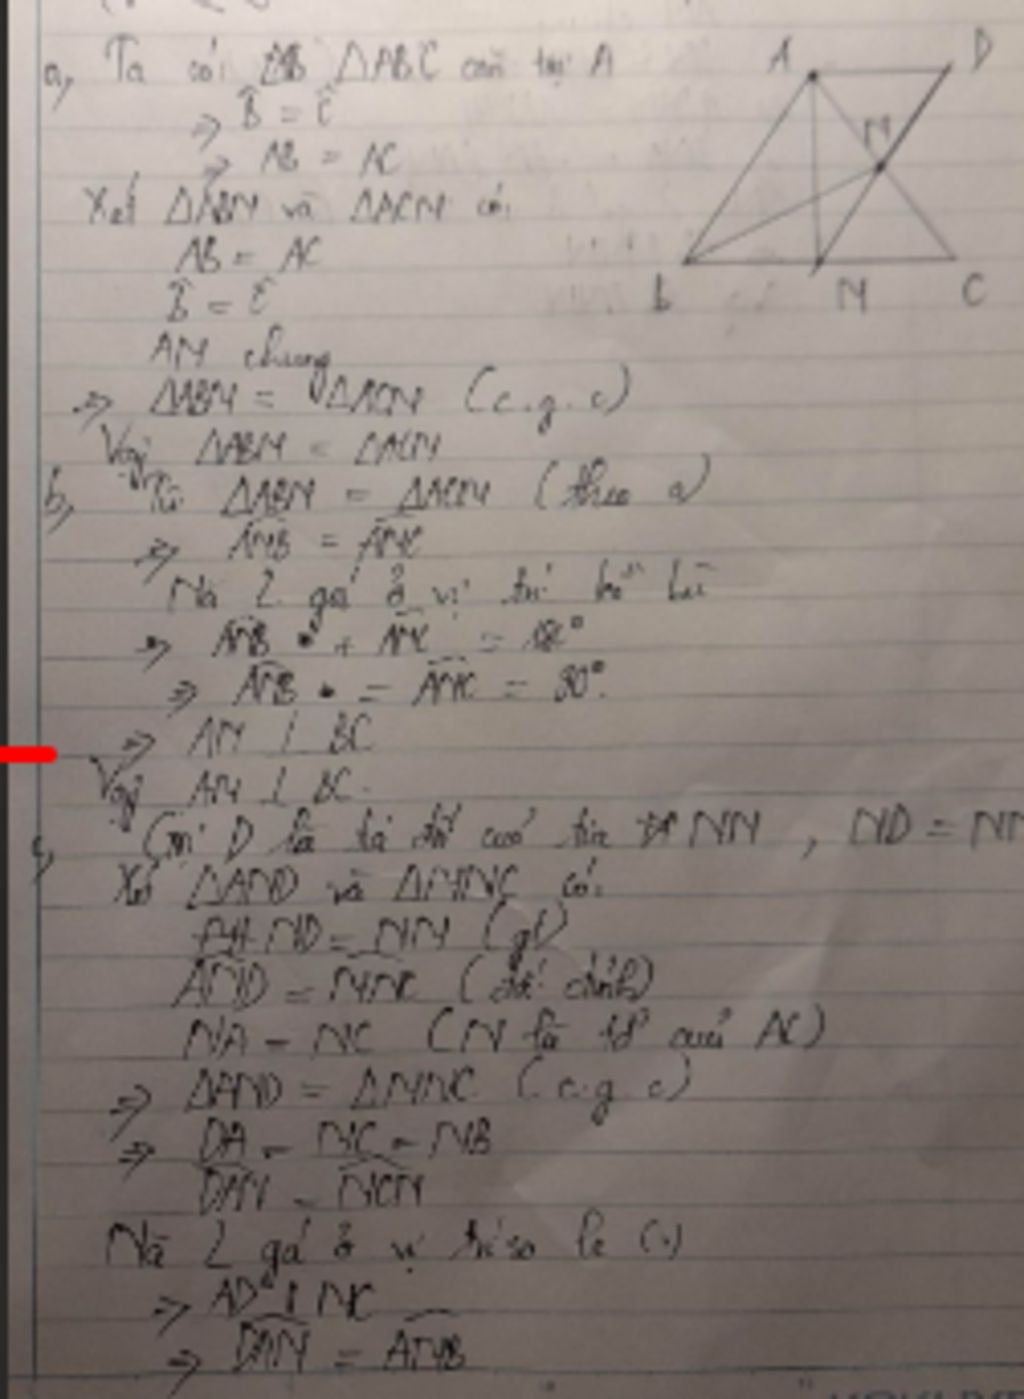 a, Ta có: ΔABC cân tại A
⇒ B̂ = Ĉ
⇒ AB = AC
Xét ΔABM và ΔACM có:
AB = AC
B̂ = Ĉ
AM chung
⇒ ΔABM = ΔACM (c.g.c)
Vậy ΔABM = ΔACM
b, Từ ΔABM = ΔACM (theo a)
⇒ AMB = AMC
Mà 2 góc ở vị trí kề bù
⇒ AMB + AMC = 180°
⇒ AMB = AMC = 90°.
⇒ AM ⊥ BC
Vậy AM ⊥ BC.
c, Gọi D là tia đối của tia NM, ND = NM
Xét ΔAND và ΔMNC có:
ND = NM (gt)
AND = MNC (đối đỉnh)
NA = NC (N là tđ của AC)
⇒ ΔAND = ΔMNC (c.g.c)
⇒ DA = MC = MB
DAN = NCM
Mà 2 góc ở vị trí so le
⇒ AD MC
⇒ DAM = AMB
A D
N
B M C